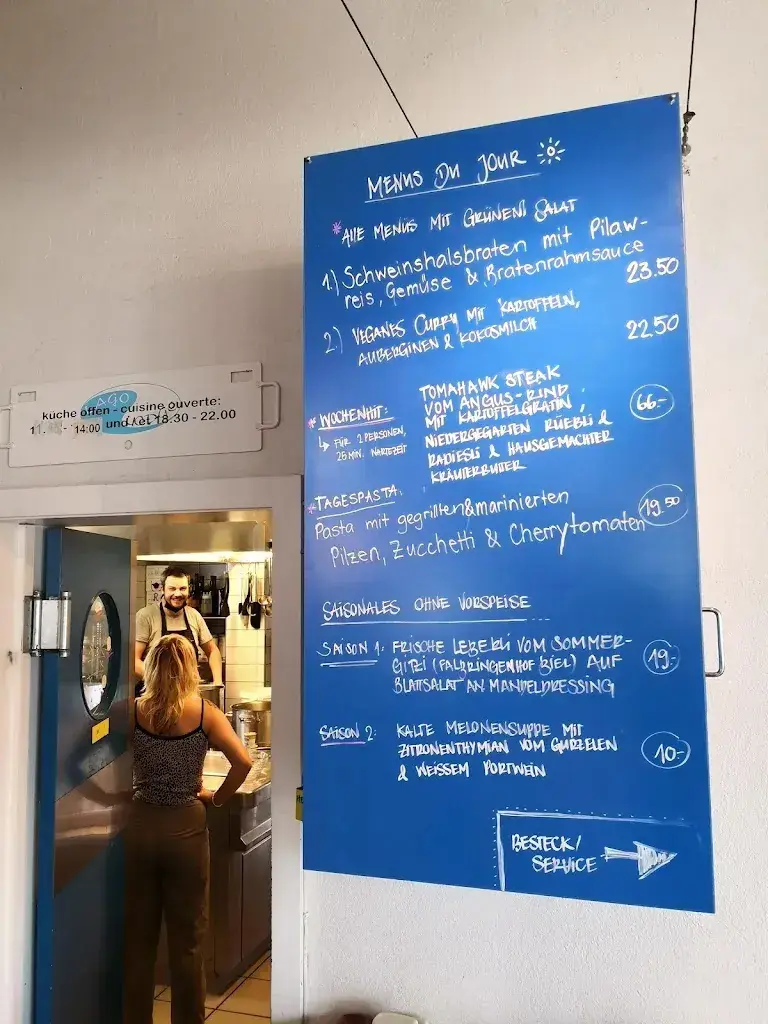 MENUS DU JOUR
*ALLE MENÜS MIT GRÜNEM SALAT
1.) Schweinshalsbraten mit Pilaw-
reis, Gemüse & Bratenrahmsauce
23.50
2.) VEGANES CURRY MIT KARTOFFELN,
AUBERGINEN & KOKOSMILCH
22.50
*WOCHENHIT:
↳ FÜR 2 PERSONEN,
25 MIN. WARTEZEIT
TOMAHAWK STEAK
VOM ANGUS-RIND
MIT KARTOFFELGRATIN,
NIEDERGEGARTEN RÜEBLI &
RADIESLI & HAUSGEMACHTER
KRÄUTERBUTTER
66.-
*TAGESPASTA:
Pasta mit gegrillten & marinierten
Pilzen, Zucchetti & Cherrytomaten
19.50
SAISONALES OHNE VORSPEISE
SAISON 1: FRISCHE LEBERLI VOM SOMMER-
GITZI (FALBRINGENHOF BIEL) AUF
BLATTSALAT AN MANDELDRESSING
19.-
SAISON 2: KALTE MELONENSUPPE MIT
ZITRONENTHYMIAN VOM GURZELEN
& WEISSEM PORTWEIN
10.-
BESTECK/
SERVICE
küche offen - cuisine ouverte:
14:00 und / et 18.30 - 22.00